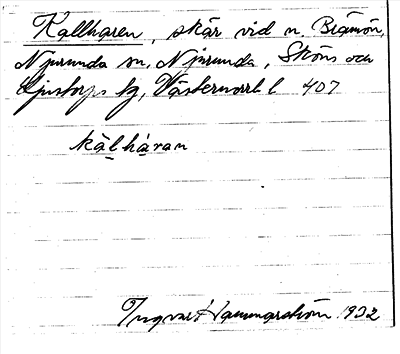 Kallharen, skär vid n. Brämön,
Njurunda sn, Njurunda, Sköns och
Ljustorps tg, Västernorrl l 407
kälhàran
Ingvar Hammarström 1932